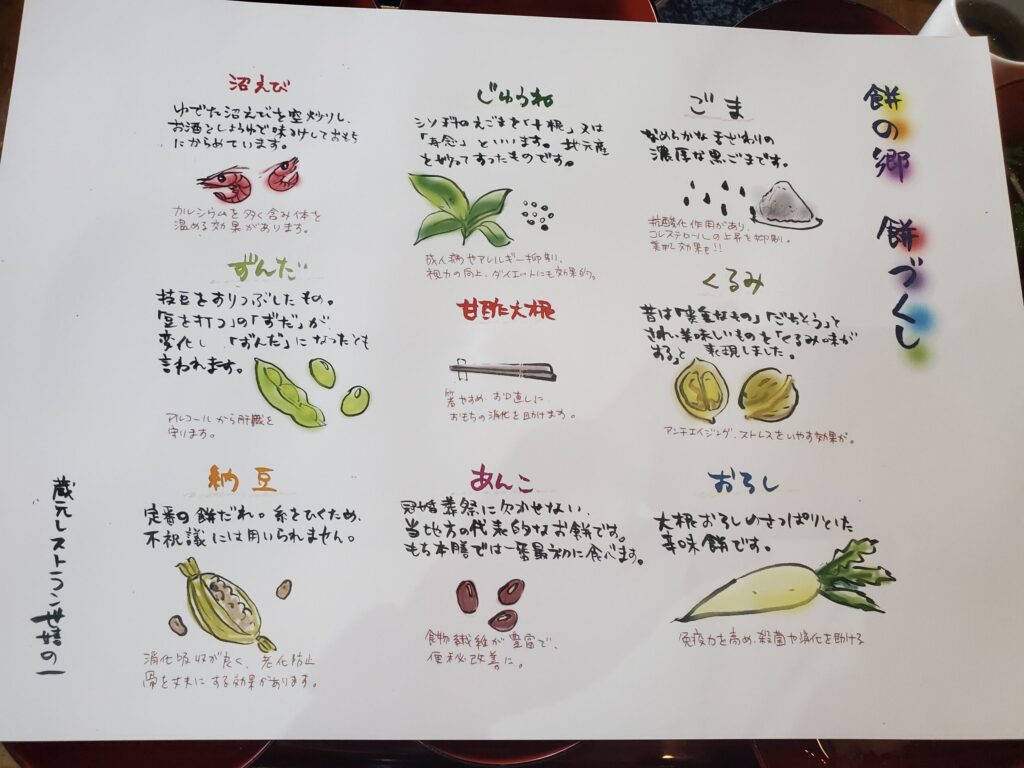 餅の郷 餅づくし
ごま
なめらかな舌ざわりの
濃厚な黒ごまです。
抗酸化作用があり、
コレステロールの上昇を抑制。
美肌効果も!!
じゅうね
シソ科のえごまを「十根」又は
「寿念」といいます。地元産
を炒ってすったものです。
成人病やアレルギー抑制、
視力の向上、ダイエットにも効果的。
沼えび
ゆでた沼えびを空炒りし、
お酒としょうゆで味つけしておもち
にからめています。
カルシウムを多く含み体を
温める効果があります。
くるみ
昔は「貴重なもの」「ごちそう」と
され、美味しいものを「くるみ味が
する」と表現しました。
アンチエイジング、ストレスをいやす効果が。
甘酢大根
箸やすめ、お口直しに
おもちの消化を助けます。
ずんだ
枝豆をすりつぶしたもの。
「豆を打つ」の「ずだ」が
変化し「ずんだ」になったとも
言われます。
アルコールから肝臓を
守ります。
おろし
大根おろしのさっぱりとした
辛味餅です。
免疫力を高め、殺菌や消化を助ける
あんこ
冠婚葬祭に欠かせない、
当地方の代表的なお餅です。
もち本膳では一番最初に食べます。
食物繊維が豊富で、
便秘改善に。
納豆
定番の餅だれ。糸をひくため、
不祝議には用いられません。
消化吸収が良く、老化防止
骨を丈夫にする効果があります。
蔵元レストラン世嬉の一